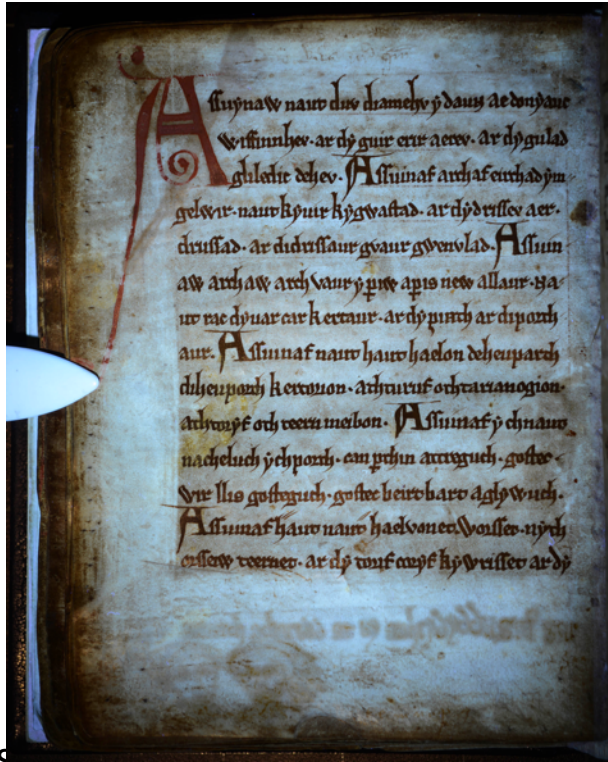 Assuynaw naut duv diamehv ý daun ae donýauc
wissinnhev. ar dý guir erir aerev. ar dý gulad
gliledic dehev. Assuinaf archaf eirchad ým
gelwir. naut kýuir kýgwastad. ar dý drissev aer.
drussad. ar didrissaur gvaur gvenvlad. Assuin
aw archaw arch vaur ý piw apis new allaur. Na
ut rac dý uar car kertaur. ar dý pirth ar diporth
aur. Assuinaf naut haut haelon deheuparth
diheuporth kertorion. ath turuf oth tarianogion.
ath torýf oth teern meibon. Assuinaf ý chnaut
nacheluch ý chporth. can pthin attreguch. gostec
vir llis gosteguch. gostec beirt bart a glýwuch.
Assuinaf haut naut haelvonet. Worsset. nýth
orssew teernet. ar dý toruf torýf ký wrisset ar dý